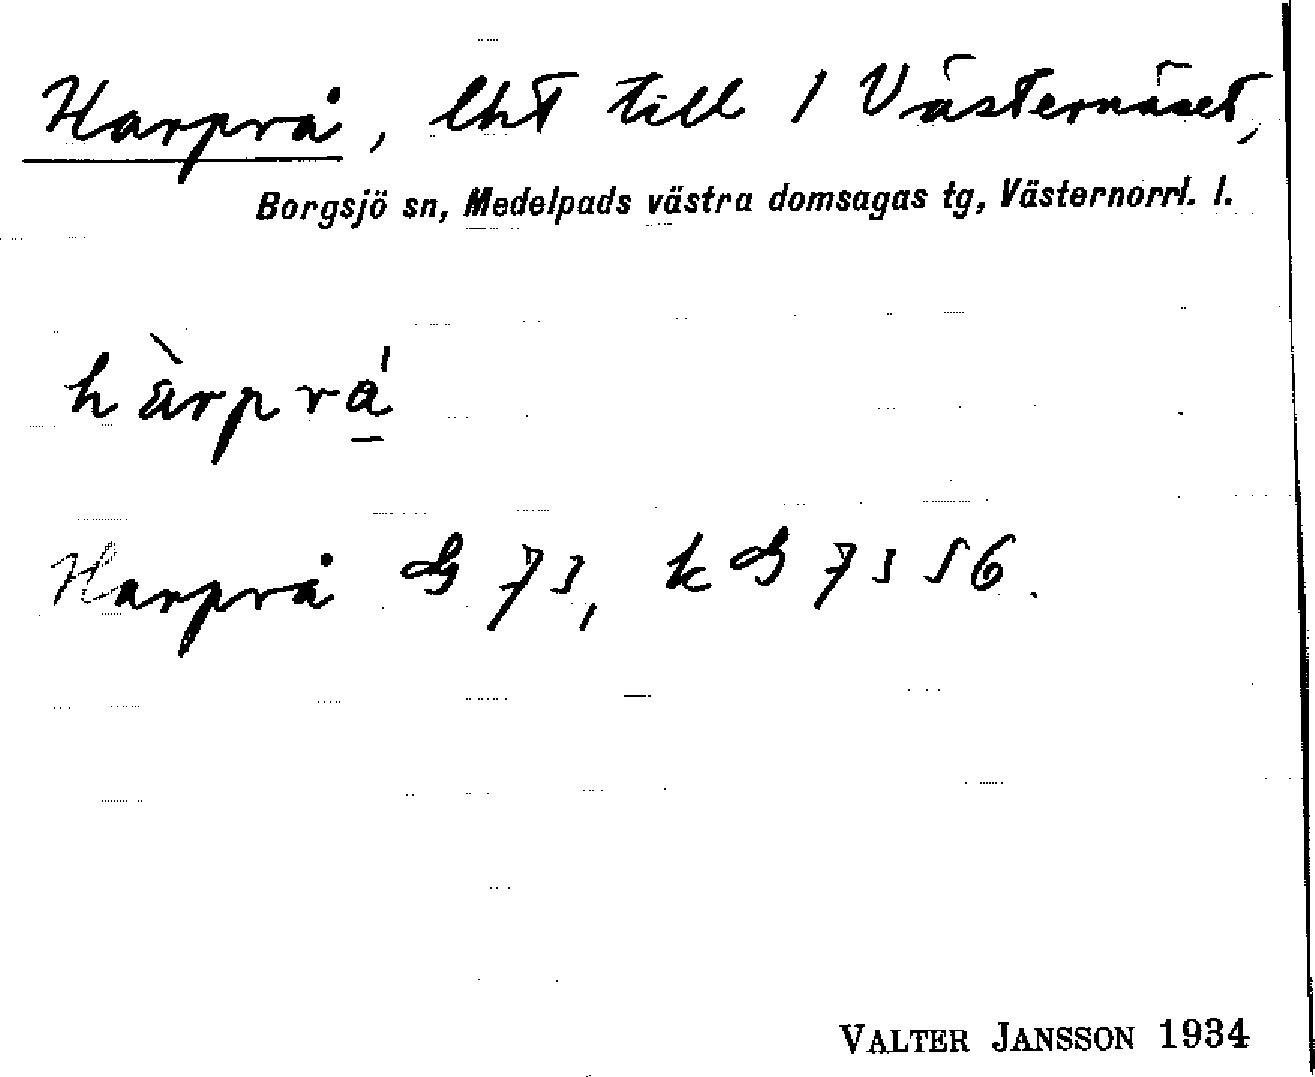 Harprå, lht till 1 Västernäset,
Borgsjö sn, Medelpads västra domsagas tg, Västernorrl. l.
hàrprå
Harprå G 73, k G 73 56.
VALTER JANSSON 1934